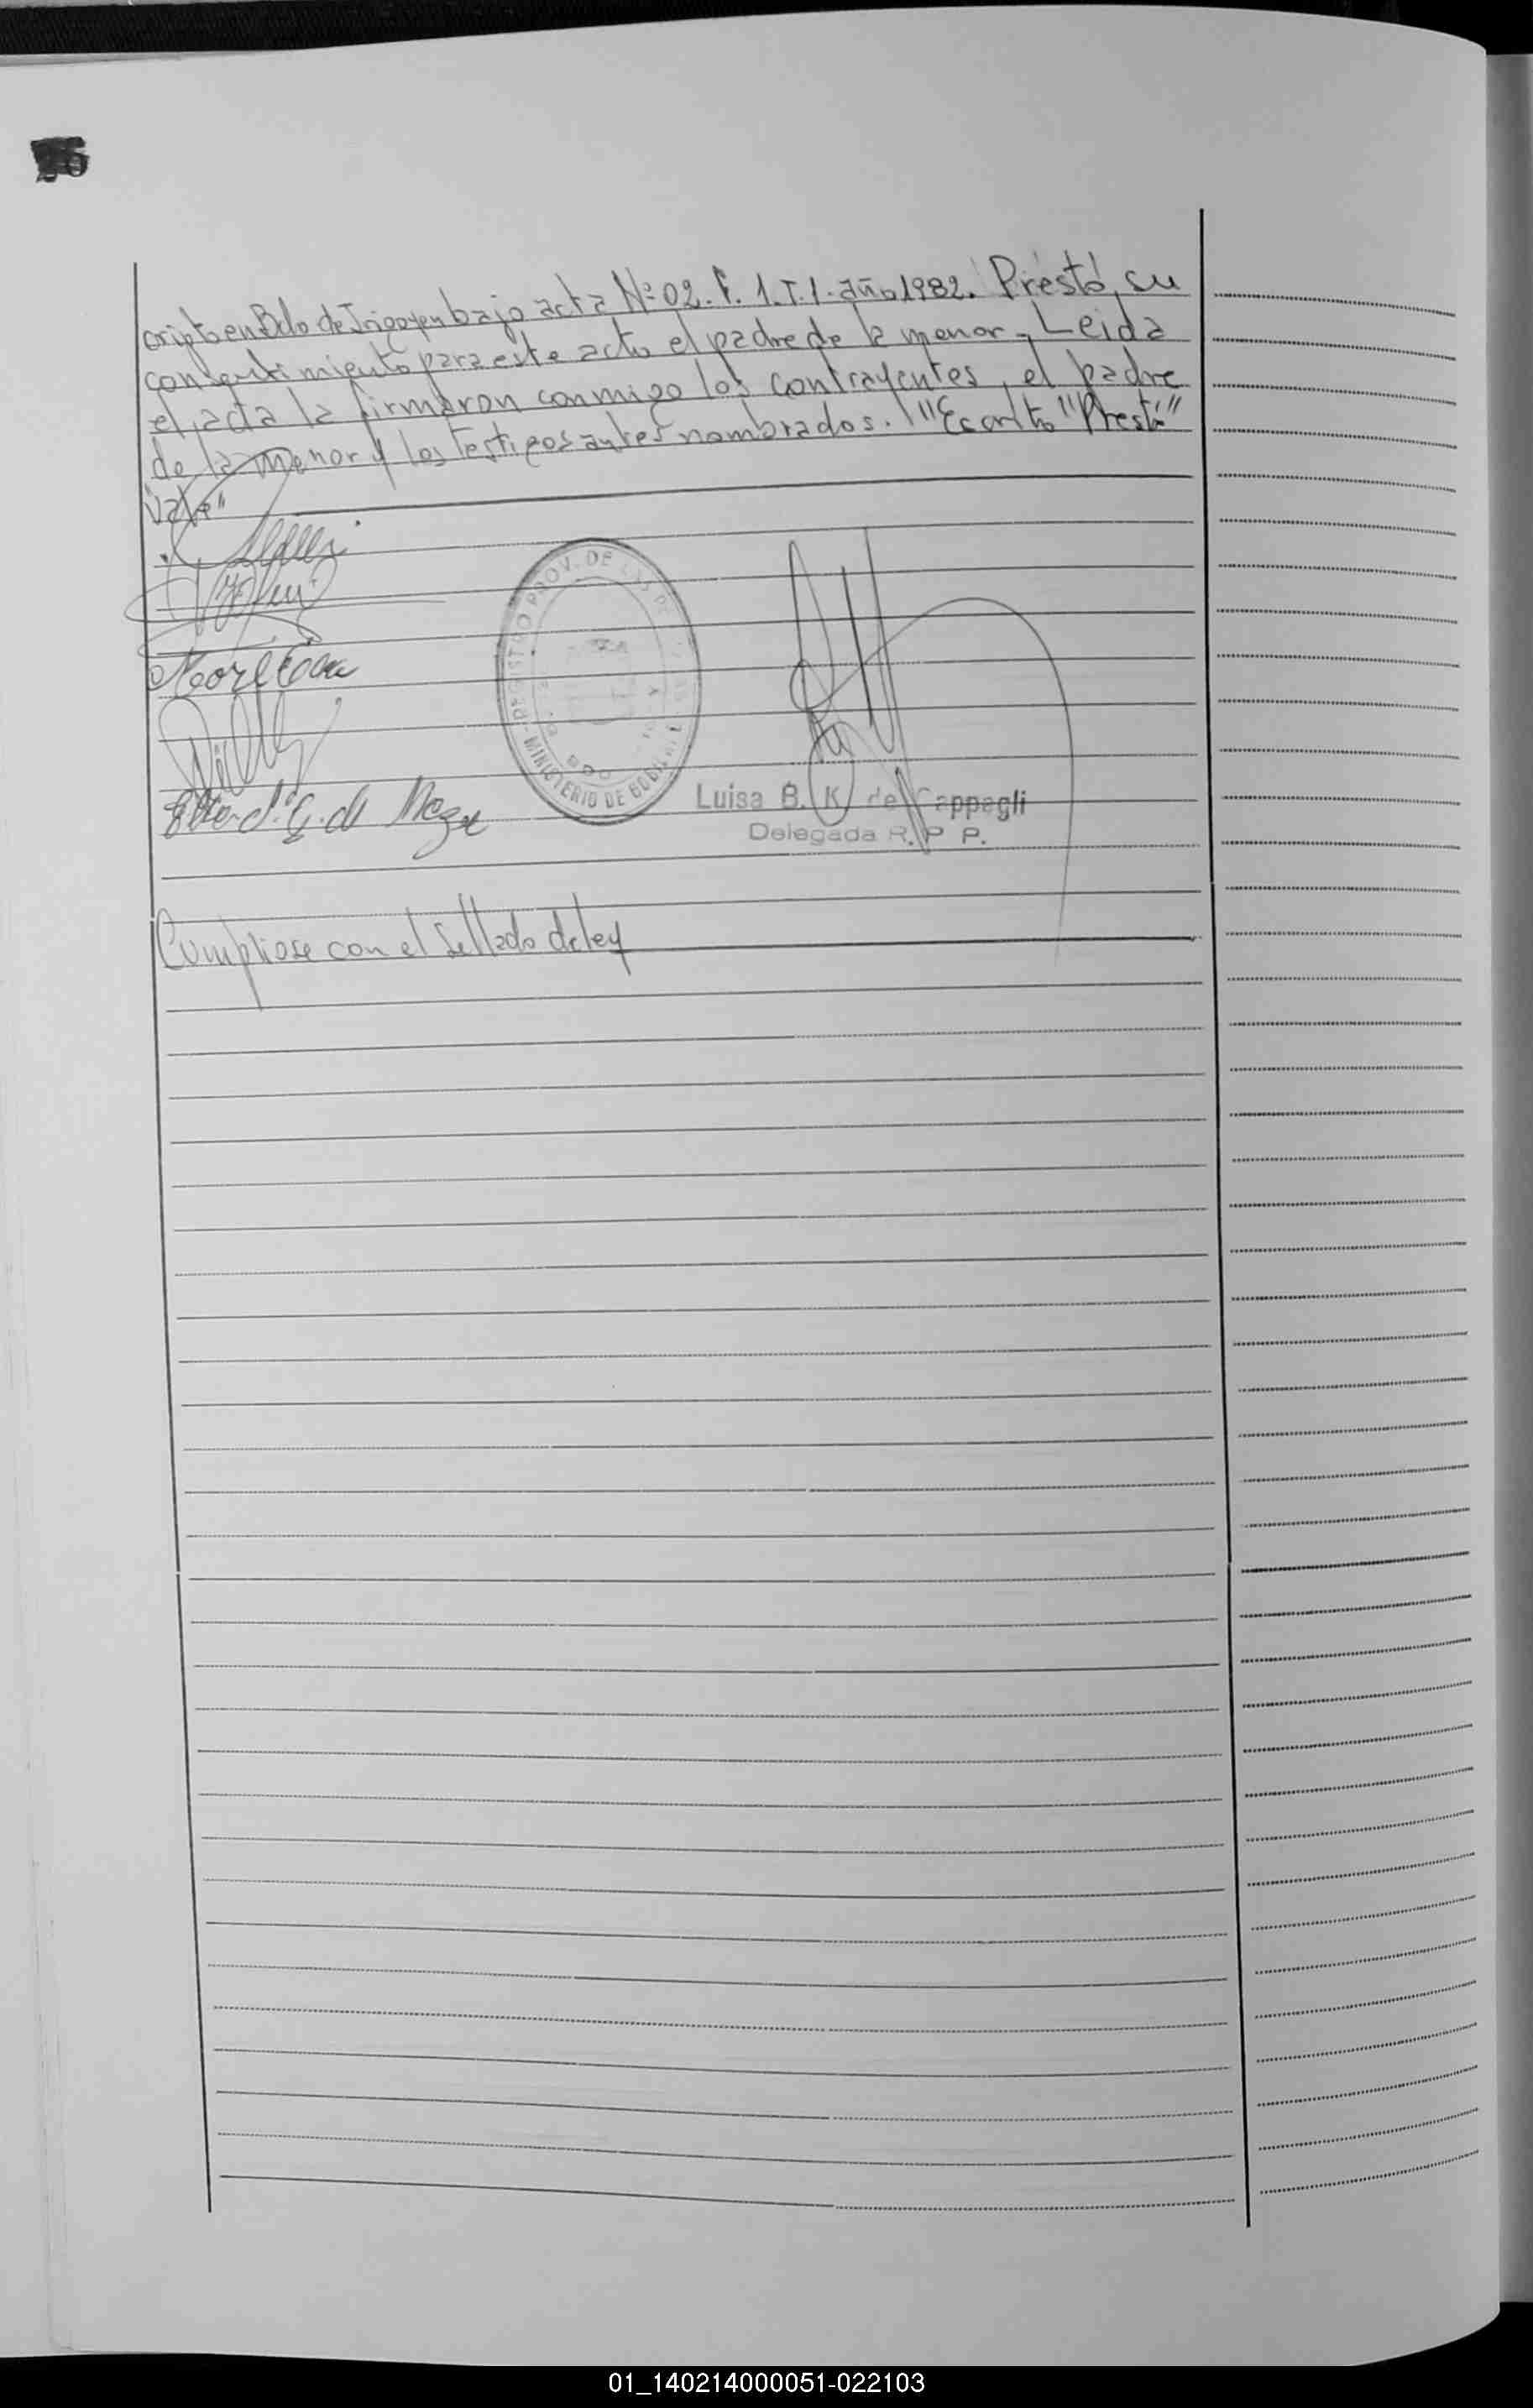 cripto en Bdo de Irigoyen bajo acta Nº 02. F. 1. T. 1. año 1982. Prestó su
consentimiento para este acto el padre de la menor - Leida
el acta la firmaron conmigo los contrayentes, el padre
de la menor y los testigos antes nombrados. "Escrito "Prestó"
Vale"
REGISTRO PROV. DE LAS
MINISTERIO DE GOB
Luisa B. K. de Cappagli
Delegada R. P P.
de Meza
Cumpliose con el sellado de ley
01_140214000051-022103